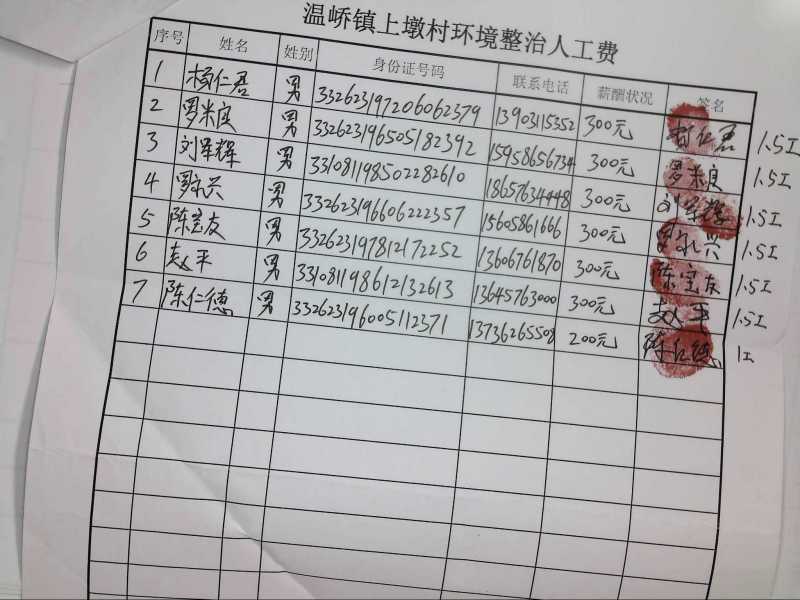 温峤镇上墩村环境整治人工费
序号 姓名 姓别 身份证号码 联系电话 薪酬状况 签名
1 杨仁君 男 332623197206062379 13903115352 300元 杨仁君 1.5工
2 罗米良 男 332623196505182392 15958656734 300元 罗米良 1.5工
3 刘军辉 男 331081198502282610 18657634448 300元 刘军辉 1.5工
4 罗永兴 男 332623196606222357 15605861666 300元 罗永兴 1.5工
5 陈宝友 男 332623197812172252 13606761870 300元 陈宝友 1.5工
6 赵平 男 331081198612132613 13645763000 300元 赵平 1.5工
7 陈仁德 男 332623196005112371 13736265508 200元 陈仁德 1工